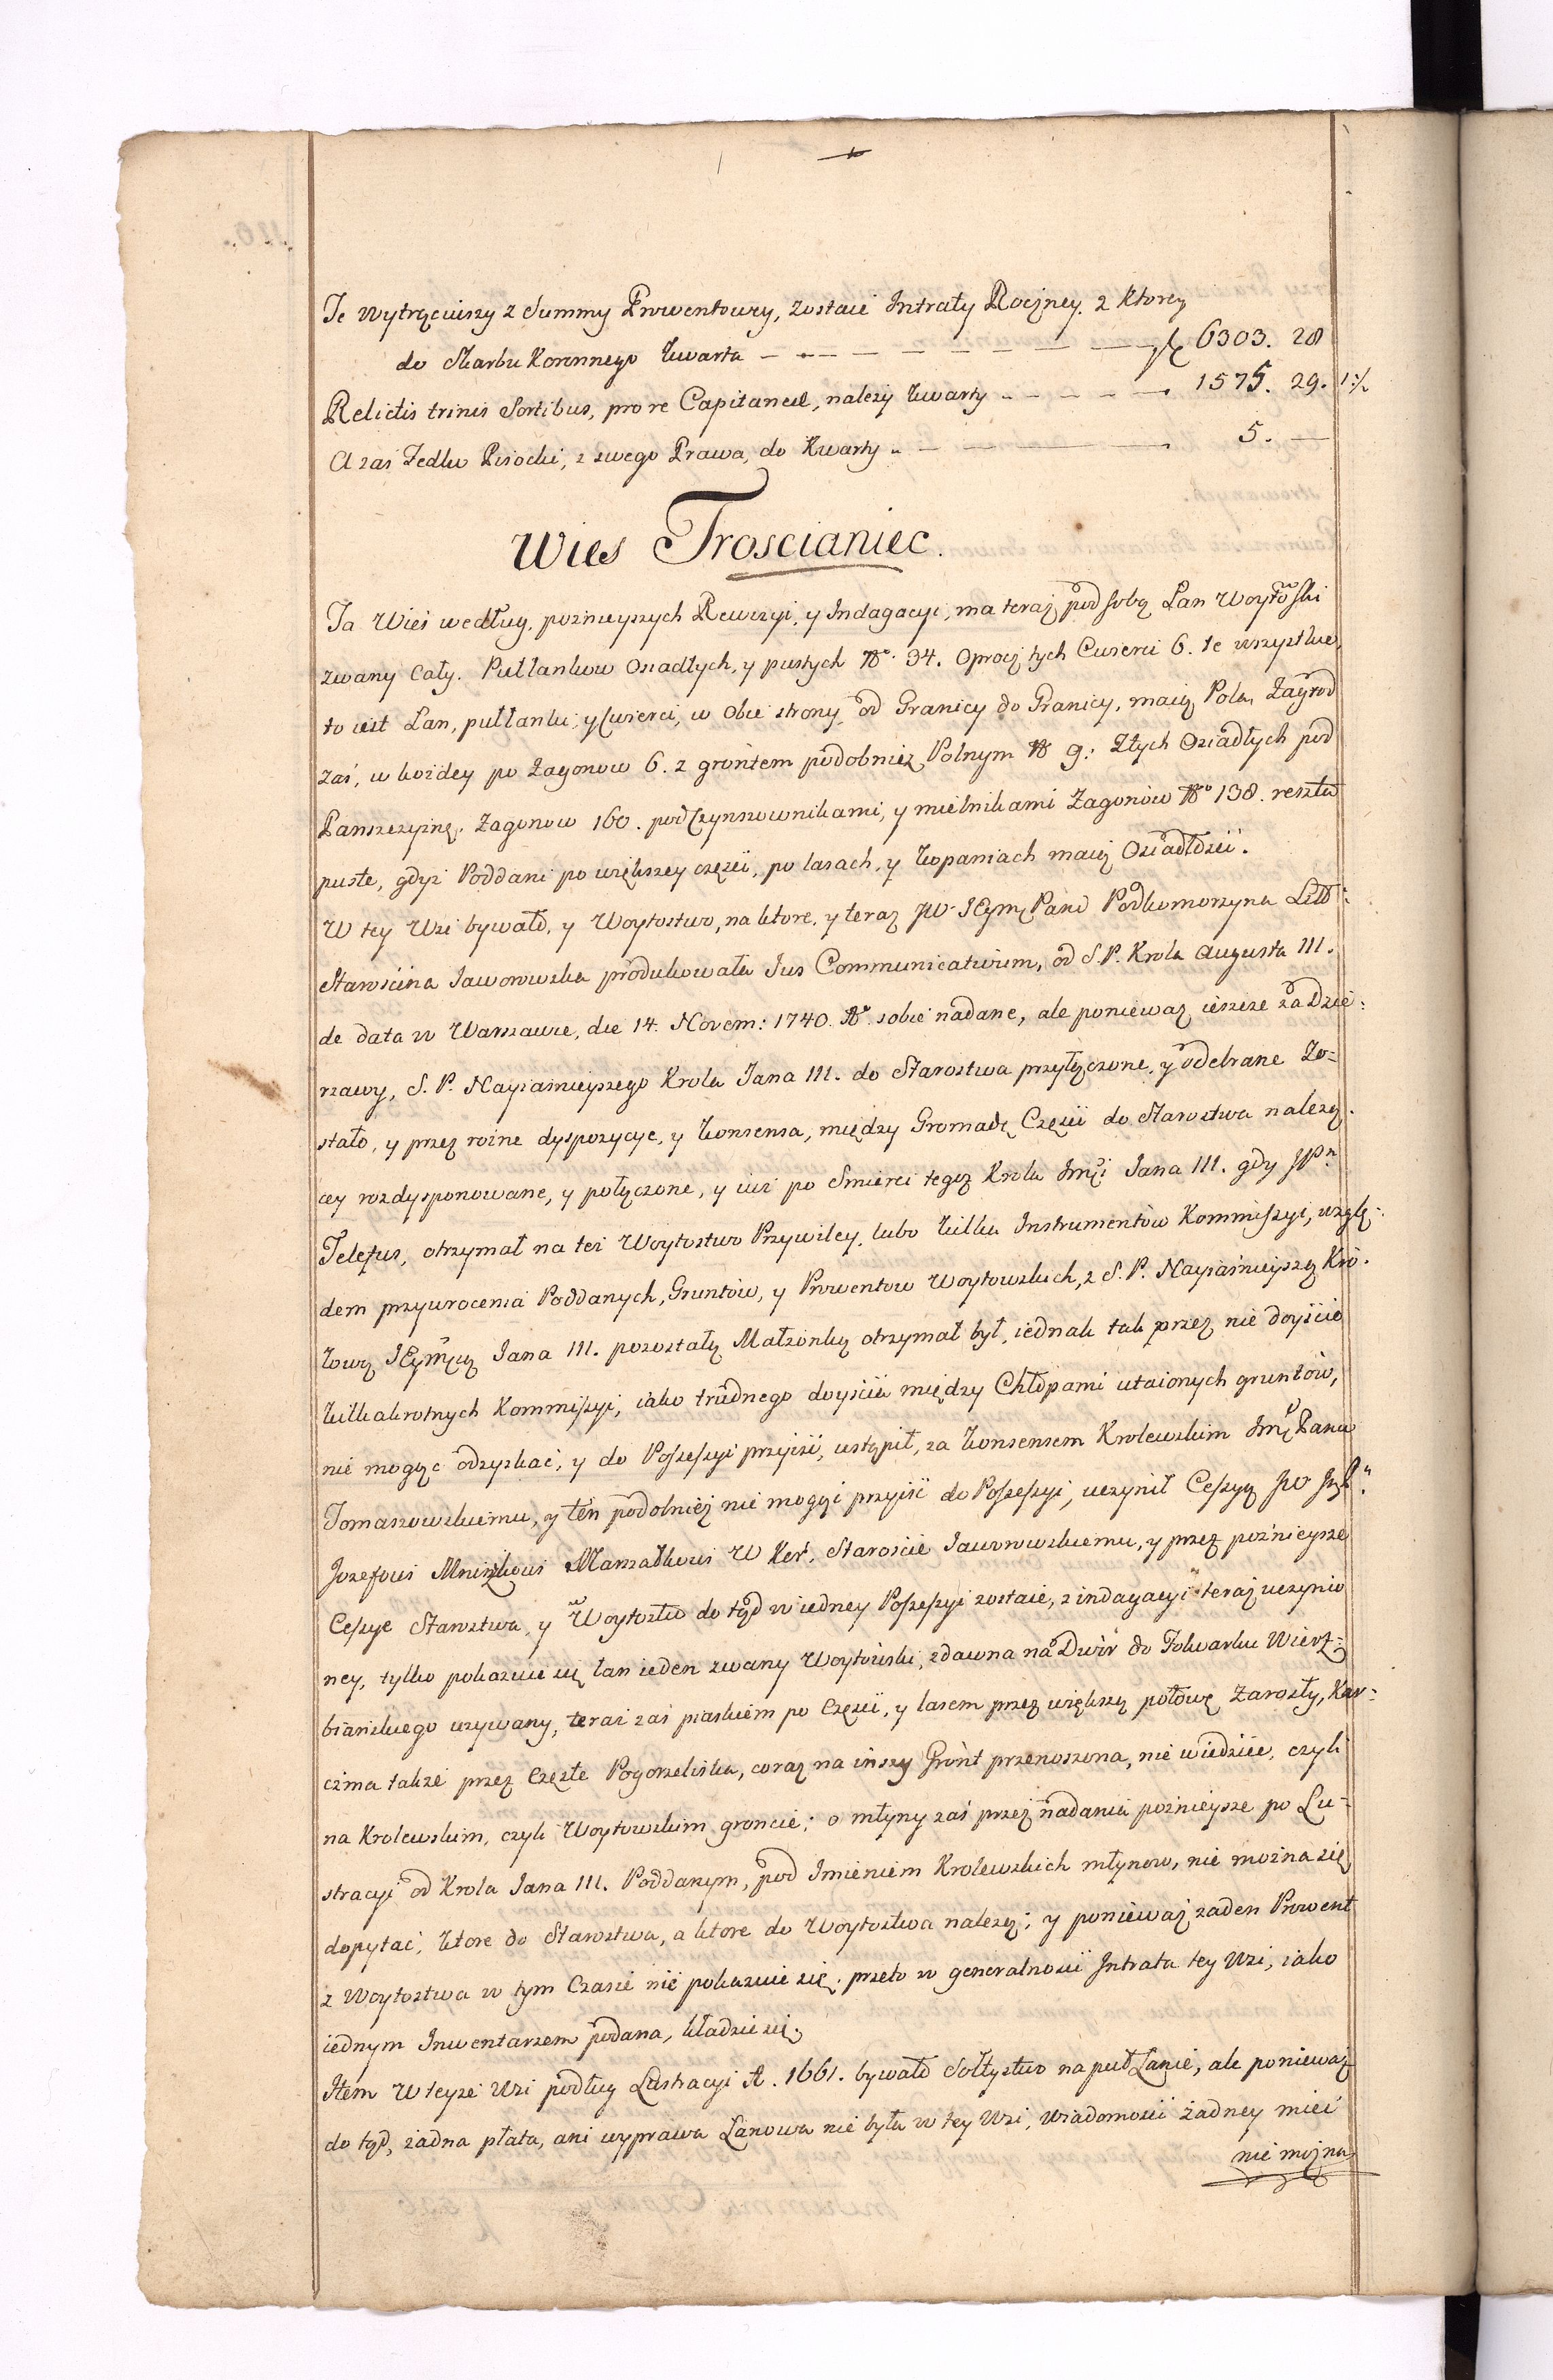 Te wytrąciwszy z Summy Prowentowey, zostaie Intraty Roczney. z ktorey
do Skarbu Koronnego kwarta — — — — — — — — fl 6303. 28
Relictis trinis Sortibus, pro re Capitanei, należy kwarty — — — — — 1575. 29. 1½
A zaś Fedko Pisocki, z swego Prawa, do Kwarty — — — — 5. —
Wies Troscianiec.
Ta Wieś według, poznieyszych Rewizyi, y Indagacyi, ma teraz pod sobą Łan Woytoski
zwany Cały. Pułłankow Osiadłych, y pustych No. 34. Oprocz tych Cwierci 6. te wszystkie,
to iest Łan, pułłanki, y Cwierci, w obie strony od Granicy do Granicy, maią Pola, Zagrod
zaś, w kożdey po Zagonow 6. z grontem podobnież Polnym No 9: Z tych Osiadłych pod
Panszczyzną. Zagonow 160. pod Czynszownikami, y mielnikami Zagonów No 138. reszta
puste, gdyż Poddani po większey części, po lasach, y kopaniach maią Osiadłości.
W tey Wsi bywało, y Woytostwo, na ktore, y teraz JW JEymć Pani Podkomorzyna Litt:
Starościna Jaworowska produkowała Ius Communicativum, od S.P. Krola Augusta III.
de data w Warszawie, die 14. Novem: 1740. Ao. sobie nadane, ale poniewaz ieszcze za Dzie:
rzawy, S.P. Nayiasnieyszego Krola Jana III. do Starostwa przyłączone, y odebrane zo=
stało, y przez rożne dyspozycye, y konsensa, między Gromadę Części do Starostwa należą.
cey rozdysponowane, y połączone, y iuż po Smierci tegoż Krola Jmci Jana III. gdy JPn
Telefus, otrzymał na też Woytostwo Przywiley, lubo kilka Instrumentów Kommissyi, wzglę-
dem przywrocenia Poddanych, Gruntów, y Prowentow Woytowskich, z S.P. Nayiaśnieyszą Kró.
lową JEymcią Jana III. pozostałą Małżonką otrzymał był, iednak tak przez nie doyście
kilkakrotnych Kommissyi, iako trudnego doyścia między Chłopami utaionych gruntów,
nie mogąc odzyskać, y do Possessyi przyiść, ustąpił, za konsensem Krolewskim Jmci Panu
Tomaszowskiemu, y ten podobnież nie mogąc przyiść do Possessyi, uczynił Cessyą JW JmP
Jozefowi Mniszkowi Marszałkowi W Kor. Staroście Jaworowskiemu, y przez poźnieysze
Cessye Starostwa, y Woytostwo do tąd w iedney Possessyi zostaie, z indagacyi teraz uczynio
ney, tylko pokazuie się łan ieden zwany Woytówski, zdawna na Dwór do Folwarku Wierz-
biańskiego używany, teraz zaś piaskiem po części, y lasem przez większą połowę zarosły, Kar-
czma także przez częste Pogorzeliska, coraz na inszy Gront przenoszona, nie wiedzieć, czyli
na Krolewskim, czyli Woytowskim groncie; o młyny zaś przez nadania poźnieysze po Lu-
stracyi od Krola Jana III. Poddanym, pod Imieniem Krolewskich młynow, nie można się
dopytać, ktore do Starostwa, a ktore do Woytostwa należą; y poniewaz żaden Prowent
z Woytostwa w tym Czasie nie pokazuie się. przeto w generalności Intrata tey Wsi, iako
iednym Inwentarzem podana, kładzie się.
Item W teyże Wsi podług Lustracyi A. 1661. bywało Sołtystwo na puł Łanie, ale poniewaz
do tąd, żadna płata, ani wyprawa Łanowa nie była w tey Wsi, wiadomości żadney mieć
nie można